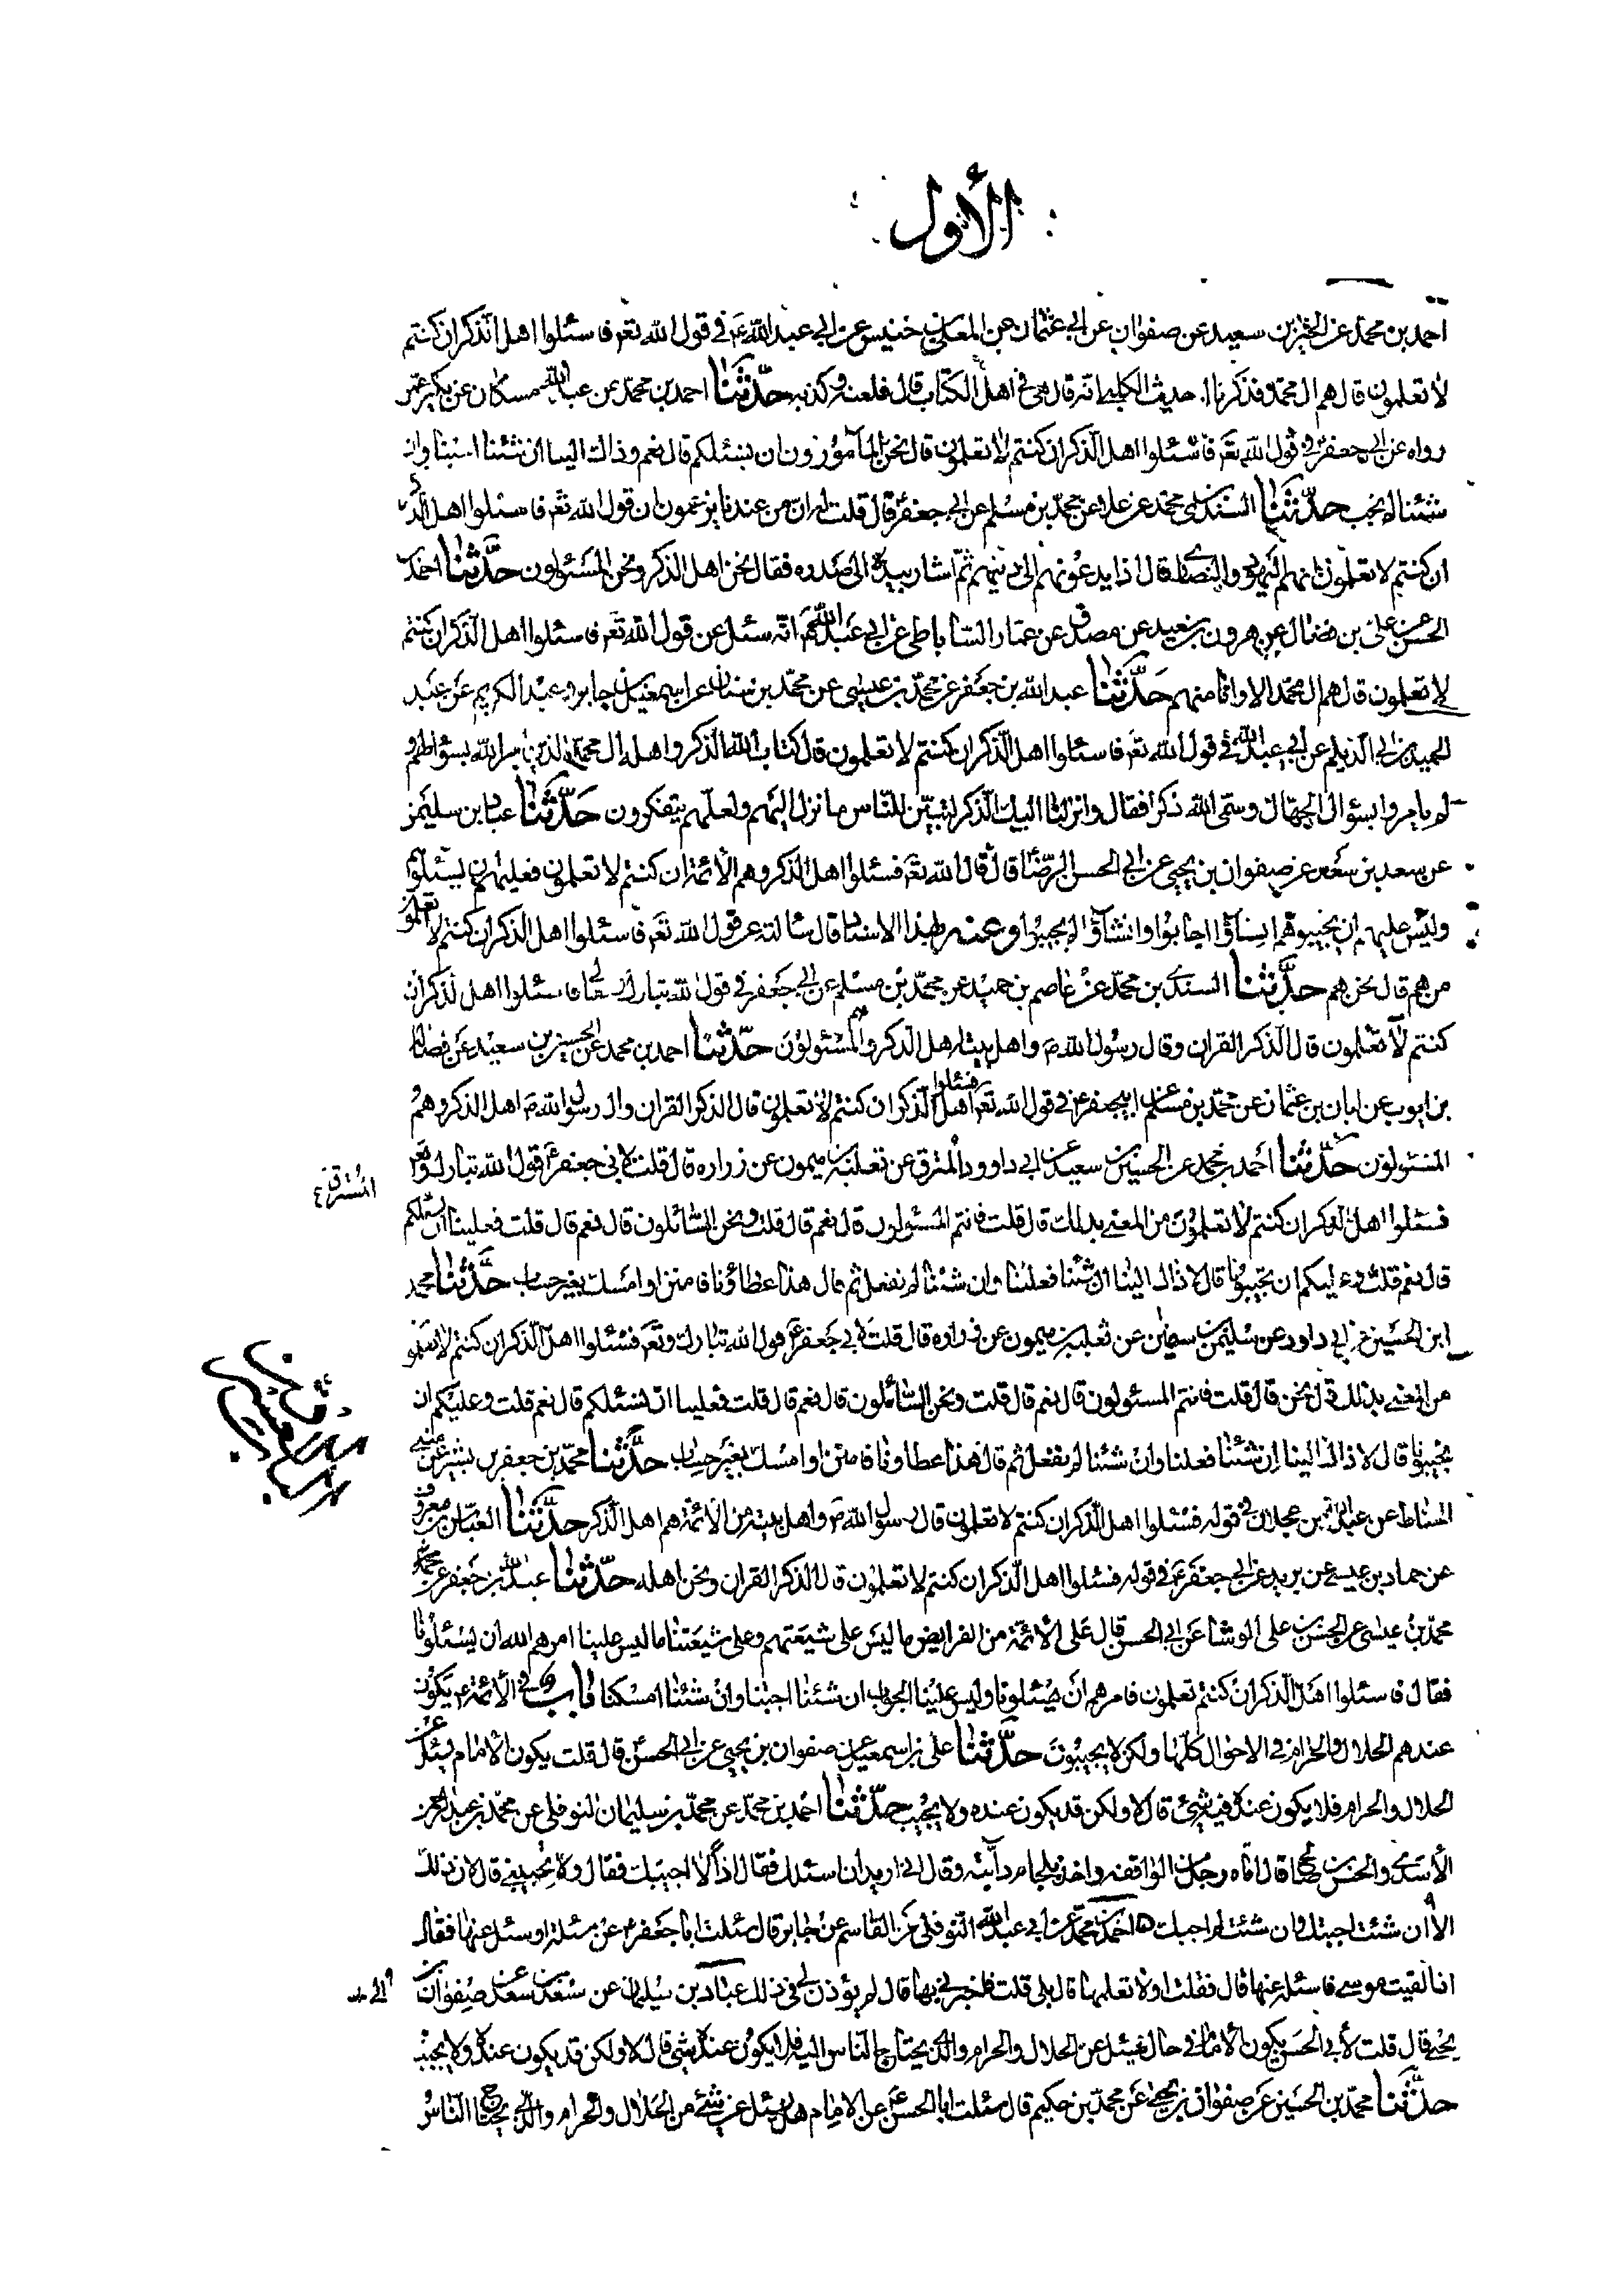 الأول
احمد بن محمد عن الحسين بن سعيد عن صفوان عن ابى عثمان عن المعلى بن خنيس عن ابى عبد الله ع فى قول الله تعه فاسئلوا اهل الذكر ان كنتم
لا تعلمون قال هم ال محمد فذكرنا له حديث الكلبى انه قال هى فى اهل الكتاب قال فلعنه وكذبه حدثنا احمد بن محمد عن عبد الله مسكان عن بكير عمن
رواه عن ابى جعفر ع فى قول الله تعه فاسئلوا اهل الذكر ان كنتم لا تعلمون قال نحن قال المأمورون ان يسئلكم قال نعم وذاك الينا ان شئنا اجبنا وان
شئنا لم نجب حدثنا السندى بن محمد عن علا عن محمد بن مسلم عن ابى جعفر ع قال قلت له ان من عندنا يزعمون ان قول الله تعه فاسئلوا اهل الذكر
ان كنتم لا تعلمون انهم اليهود والنصارى قال اذا يدعونهم الى دينهم ثم اشار بيده الى صدره فقال نحن اهل الذكر ونحن المسئولون حدثنا احمد بن
الحسن بن على بن فضال عن هرون بن سعيد عن مصدق عن عمار الساباطى عن ابى عبد الله ع انه سئل عن قول الله تعه فاسئلوا اهل الذكر ان كنتم
لا تعلمون قال هم ال محمد الا وانا منهم حدثنا عبد الله بن جعفر عن محمد بن عيسى عن محمد بن سنان عن اسمعيل بن جابر و عبد الكريم عن عبد
الحميد بن ابى الديلم عن ابى عبد الله ع فى قول الله تعه فاسئلوا اهل الذكر ان كنتم لا تعلمون قال كتاب الله الذكر واهله ال محمد الذين امر الله بسؤالهم و
لم يامروا بسؤال الجهال وسمى الله ذكرا فقال وانزلنا اليك الذكر لتبين للناس ما نزل اليهم ولعلهم يتفكرون حدثنا عباد بن سليمن
عن سعد بن سعد عن صفوان بن يحيى عن ابى الحسن الرضا ع قال قال الله تعه فسئلوا اهل الذكر وهم الائمة ان كنتم لا تعلمون فعليهم ان يسئلوا
وليس عليهم ان يجيبوهم ان شاؤا اجابوا وان شاؤا لم يجيبوا وعنه بهذا الاسناد قال سالته عن قول الله تعه فاسئلوا اهل الذكر ان كنتم لا تعلمون
من هم قال نحن هم حدثنا السندى بن محمد عن عاصم بن حميد عن محمد بن مسلم عن ابى جعفر فى قول الله تبارك وتعالى فاسئلوا اهل الذكر ان
كنتم لا تعلمون قال الذكر القران وقال رسول الله ص واهل بيته اهل الذكر وهم المسئولون حدثنا احمد بن محمد عن الحسين بن سعيد عن فضاله
بن ايوب عن ابان بن عثمان عن محمد بن مسلم عن ابيجعفر ع فى قول الله تعه فسئلوا اهل الذكر ان كنتم لا تعلمون قال الذكر القران وال رسول الله ص اهل الذكر وهم
المسئولون حدثنا احمد بن محمد عن الحسين بن سعيد عن ابى داوود المترق عن ثعلبة بن ميمون عن زراره قال قلت لابى جعفر ع قول الله تبارك وتعه
المسترق ع
فسئلوا اهل الذكر ان كنتم لا تعلمون من المعنى بذلك قال قلت فانتم المسئولون قال نعم قال قلت ونحن السائلون قال نعم قال قلت فعلينا ان نسئلكم
قال نعم قلت وعليكم ان تجيبونا قال لا ذاك الينا ان شئنا فعلنا وان شئنا لم نفعل ثم قال هذا عطاؤنا فامنن او امسك بغير حساب حدثنا محمد
ابن الحسين عن ابى داود عن سليمن بن سفين عن ثعلبة بن ميمون عن زراره قال قلت لابى جعفر ع قول الله تبارك وتعه فسئلوا اهل الذكر ان كنتم لا تعلمو
من المعنى بذلك قال نحن قال قلت فانتم المسئولون قال نعم قال قلت ونحن السائلون قال نعم قال قلت فعلينا ان نسئلكم قال نعم قلت وعليكم ان
تجيبونا قال لا ذاك الينا ان شئنا فعلنا وان شئنا لم نفعل ثم قال هذا عطاونا فامنن او امسك بغير حساب حدثنا محمد بن جعفر بن بشير عن مثنى
الحناط عن عبد الله بن عجلان فى قوله فسئلوا اهل الذكر ان كنتم لا تعلمون قال رسول الله ص واهل بيته من الائمة هم اهل الذكر حدثنا العباس بن معروف
عن حماد بن عيسى عن بريد عن ابى جعفر ع فى قوله فسئلوا اهل الذكر ان كنتم لا تعلمون قال الذكر القران ونحن اهله حدثنا عبد الله بن جعفر عن محمد
محمد بن عيسى عن الحسن بن على الوشا عن ابى الحسن قال على الائمة من الفرايض ما ليس على شيعتهم وعلى شيعتنا ما ليس علينا امرهم الله ان يسئلونا
فقال فاسئلوا اهل الذكر ان كنتم تعلمون فامرهم ان يسئلونا وليس علينا الجواب ان شئنا اجبنا وان شئنا امسكنا باب فى الأئمة ع يكون
عندهم الحلال والحرام فى الاحوال كلها ولكن لا يجيبون حدثنا على بن اسمعيل عن صفوان بن يحيى عن ابى الحسن قال قلت يكون الامام يسئل عن
الحلال والحرام فلا يكون عنده فيه شئ قال لا ولكن قد يكون عنده ولا يجيب حدثنا احمد بن محمد عن محمد بن سليمان النوفلى عن محمد بن عبد الرحمن
الأسدى والحسن بن صالح قال اتاه رجل من الواقفة واخذ بلجام دابته وقال انى اريد ان اسئلك فقال اذا لا اجيبك فقال ولم لا تجيبنى قال لان ذلك
الى ان شئت اجبتك وان شئت لم اجبك احمد بن محمد عن ابى عبد الله النوفلى عن القاسم عن جابر قال سئلت ابا جعفر ع عن مسئلة او سئل عنها فقال
اذا لقيت موسى فاسئله عنها قال فقلت اولا تعلمها قال بلى قلت فاخبرنى بها قال لم يؤذن لى فى ذلك عباد بن سليمان عن سعد بن سعد عن صفوان بن
يحيى قال قلت لأبى الحسن يكون الأمام فى حال يسئل عن الحلال والحرام والذى يحتاج الناس اليه فلا يكون عنده شئ قال لا ولكن قد يكون عنده ولا يجيب
حدثنا محمد بن الحسين عن صفوان بن يحيى عن محمد بن حكيم قال سئلت ابا الحسن ع عن الامام هل يسئل عن شئ من الحلال والحرام والذى يحتاج الناس